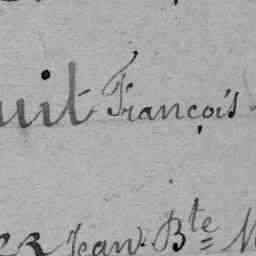 uit François
er Jean Bte